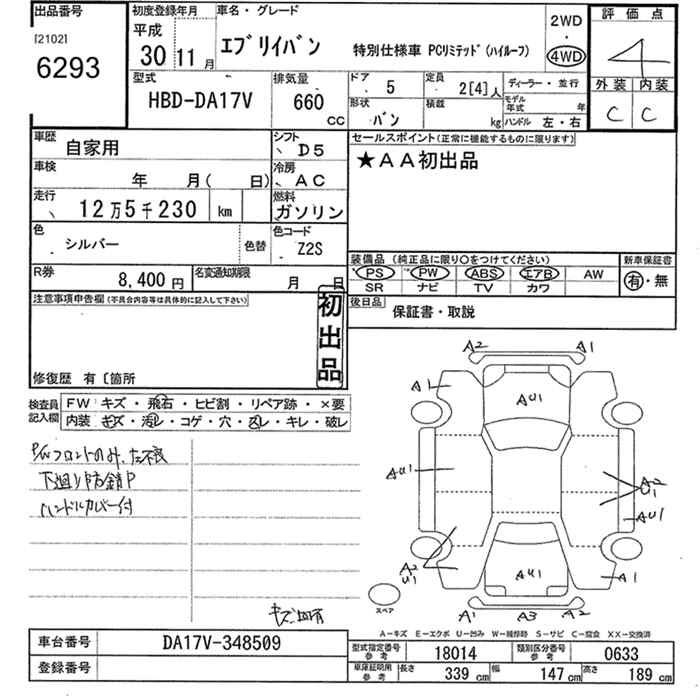 出品番号 初度登録年月 車名・グレード 2WD 評価点
[2102] 平成 ・
6293 30 11月 エブリイバン 特別仕様車 PCリミテッド(ハイルーフ) 4WD 4
型式 排気量 ドア 5 定員 2[4]人 ディーラー・並行 外装 内装
HBD-DA17V 660 CC 形状 バン 積載 kg モデル年式 年 C C
ハンドル 左・右
車歴 自家用 シフト D5 セールスポイント(正常に機能するものに限ります)
車検 年 月( 日) 冷房 AC ★AA初出品
走行 12万5千230 km 燃料 ガソリン
色 シルバー 色替 色コード Z2S
装備品(純正品に限り○をつけてください) 新車保証書
PS PW ABS エアB AW 有・無
SR ナビ TV カワ
R券 8,400円 名変通知期限 月 日
後日品 保証書・取説
注意事項申告欄(不具合内容等は具体的に記入して下さい)
初出品
修復歴 有〔箇所
検査員記入欄 FW キズ・飛石・ヒビ割・リペア跡・×要
内装 キズ・汚レ・コゲ・穴・スレ・キレ・破レ
P/Wフロントのみ
下廻り防錆P
ハンドルカバー付
キズ凹有
A2 A1
A1 AU1
AU1 A2 U1
AU1
A2 U1 AU1 A1
スペア
A1 A3 A2
A-キズ E-エクボ U-凹ミ W-補修跡 S-サビ C-腐食 XX-交換済
車台番号 DA17V-348509
登録番号
型式指定番号 参考 18014 類別区分番号 参考 0633
車庫証明用 参考 長さ 339cm 幅 147cm 高さ 189cm